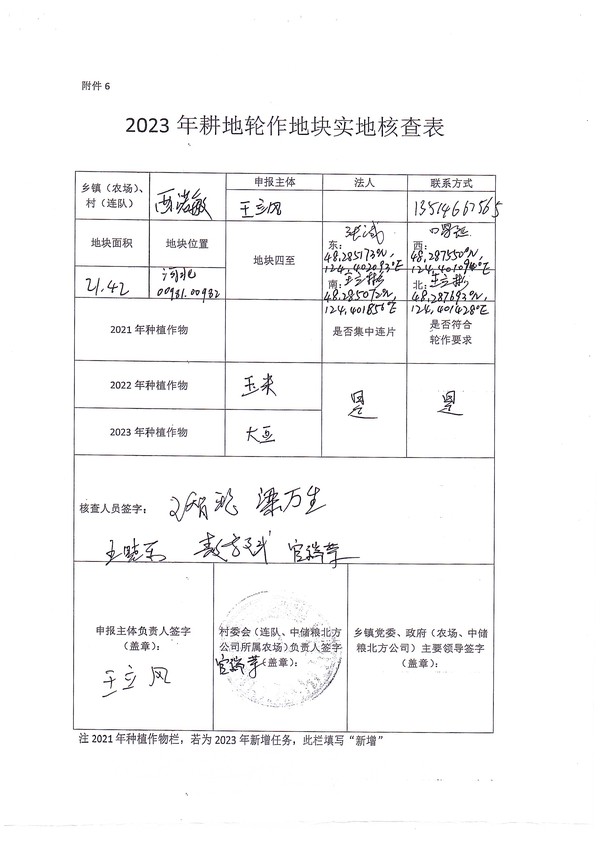 附件 6
2023 年耕地轮作地块实地核查表
乡镇（农场）、村（连队）
申报主体
法人
联系方式
王立风
13514667565
地块面积
地块位置
地块四至
东：
48.285173°N,
124.402093°E
西：
48.287550°N,
124.401094°E
21.42
河北
00931.00932
南：王立彬
48.285072°N,
124.401856°E
北：王立彬
48.287693°N,
124.401428°E
2021 年种植作物
是否集中连片
是否符合
轮作要求
2022 年种植作物
玉米
是
是
2023 年种植作物
大豆
核查人员签字：
梁万生
王晓东
官瑞芹
申报主体负责人签字
（盖章）：
王立风
村委会（连队、中储粮北方
公司所属农场）负责人签字
（盖章）：
官瑞芹
乡镇党委、政府（农场、中储
粮北方公司）主要领导签字
（盖章）：
注 2021 年种植作物栏，若为 2023 年新增任务，此栏填写“新增”